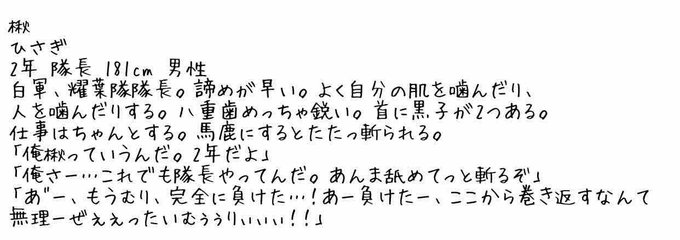 楸
ひさぎ
2年 隊長 181cm 男性
白軍、耀葉隊隊長。諦めが早い。よく自分の肌を噛んだり、
人を噛んだりする。八重歯めっちゃ鋭い。首に黒子が2つある。
仕事はちゃんとする。馬鹿にするとたたっ斬られる。
「俺楸っていうんだ。2年だよ」
「俺さー…これでも隊長やってんだ。あんま舐めてっと斬るぞ」
「あ゛ー、もうむり、完全に負けた…!あー負けたー、ここから巻き返すなんて
無理ーぜえぇったいむぅぅりぃぃぃ!!」